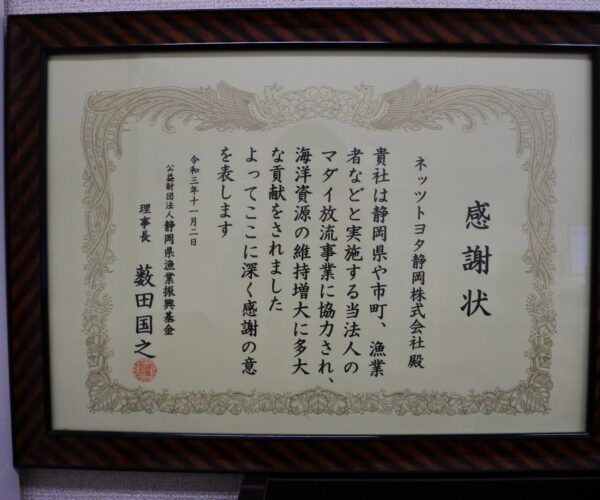 感謝状
ネッツトヨタ静岡株式会社 殿
貴社は静岡県や市町、漁業
者などと実施する当法人の
マダイ放流事業に協力され、
海洋資源の維持増大に多大
な貢献をされました
よってここに深く感謝の意
を表します
令和三年十一月二日
公益財団法人静岡県漁業振興基金
理事長 薮田国之